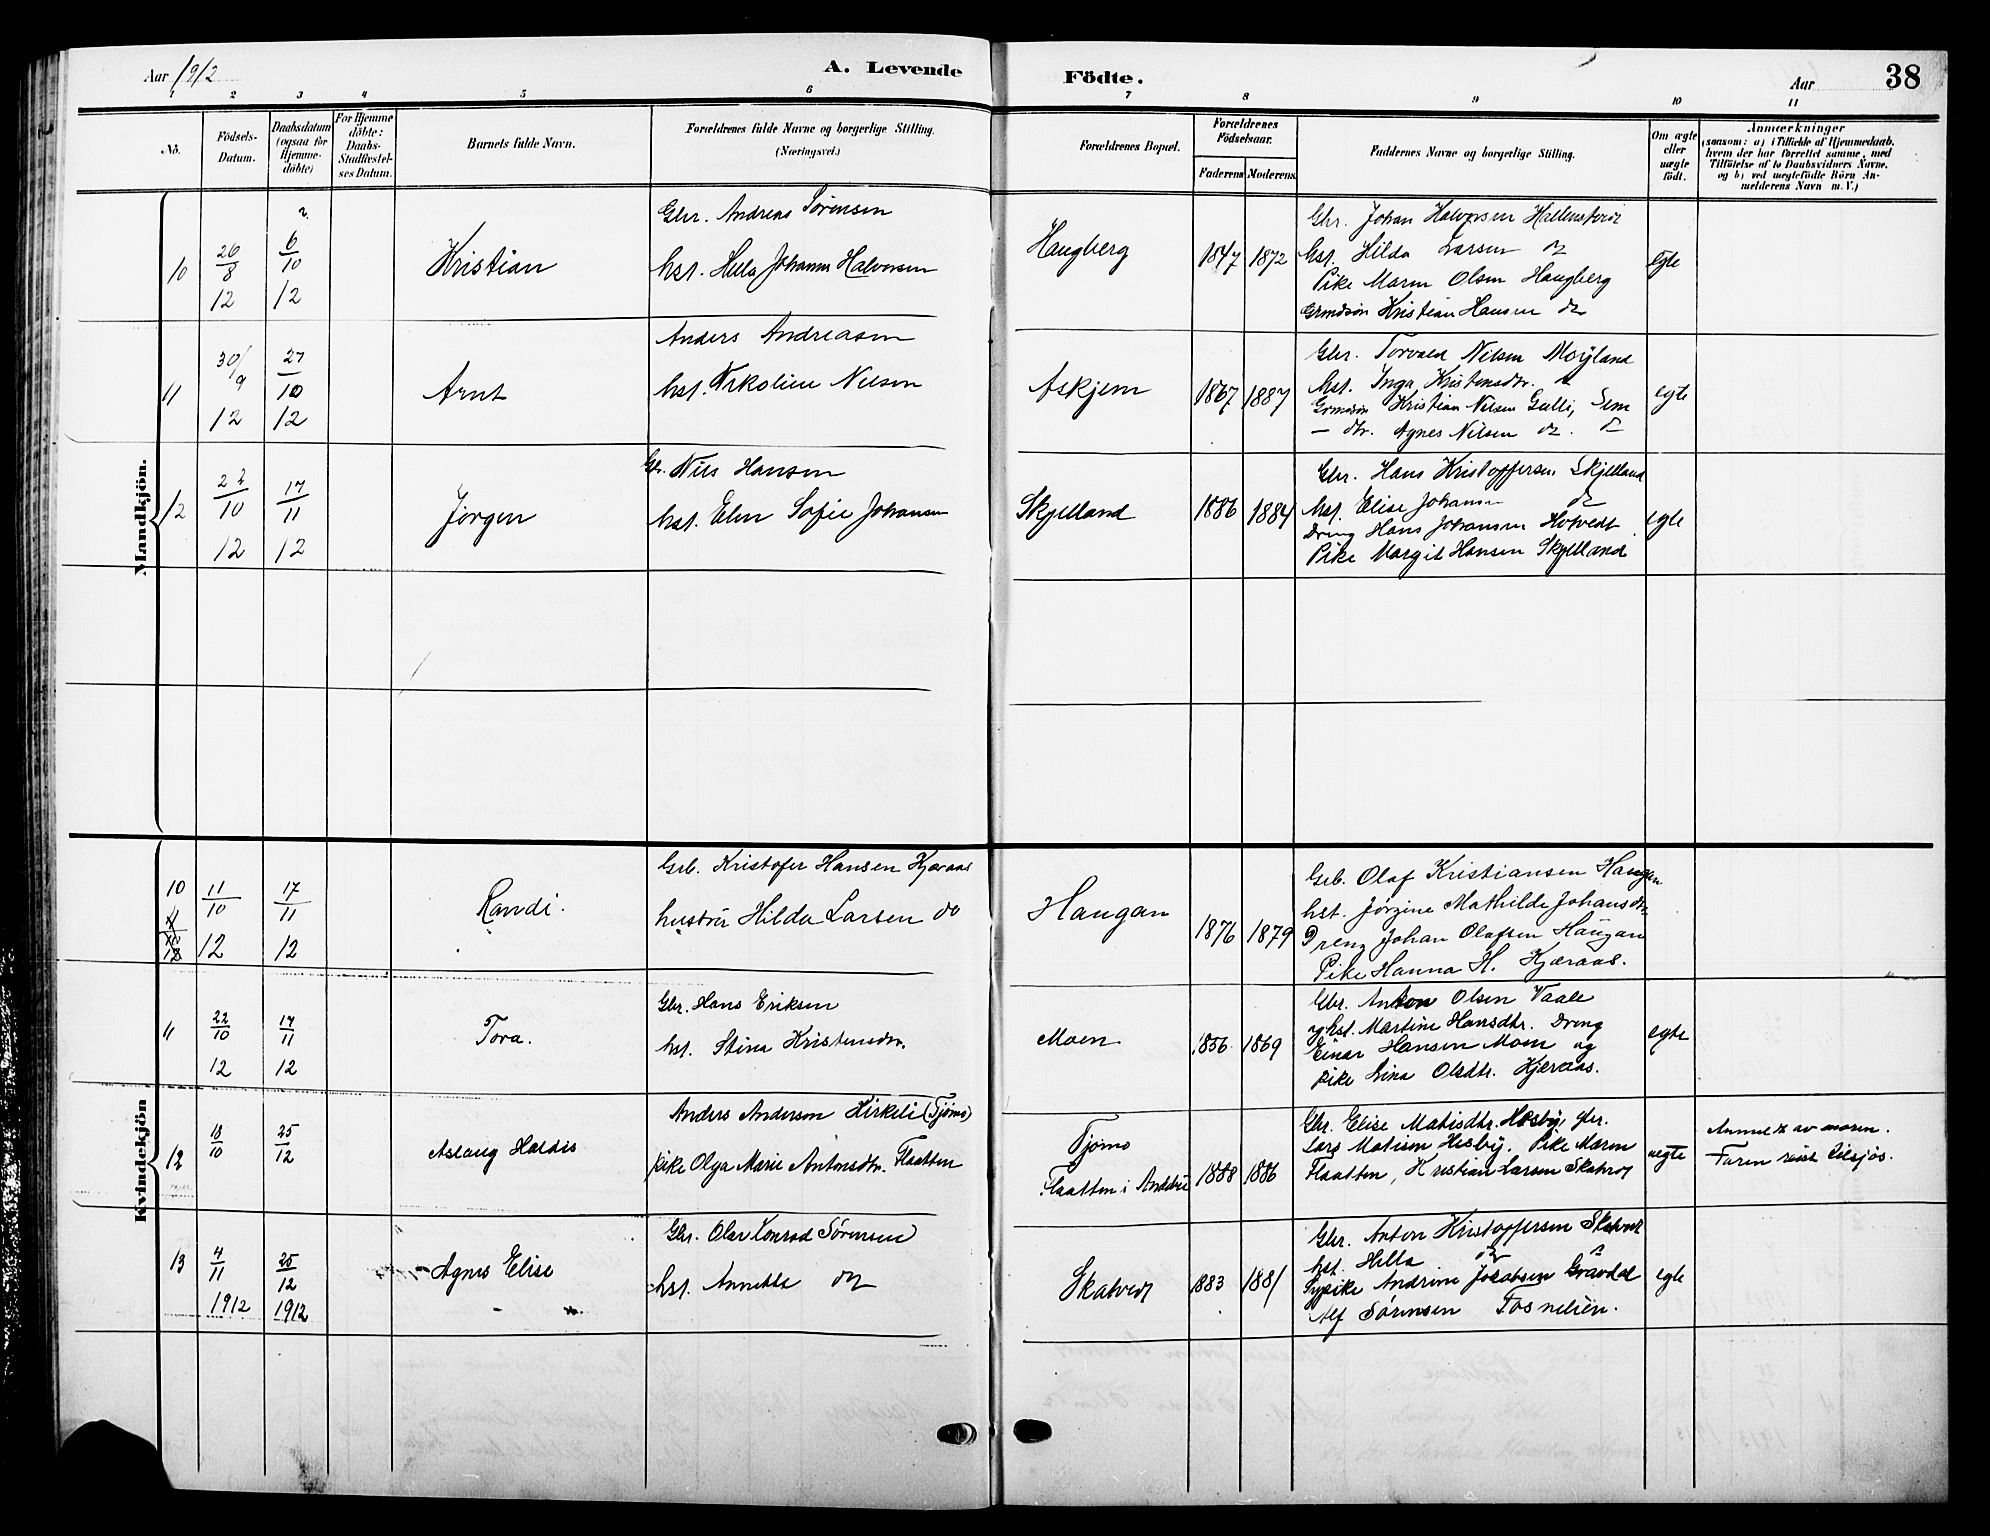 Aar 1912
A. Levende
Födte.
Aar
38
1 2 3 4 5 6 7 8 9 10 11
No.
Födsels-
Datum.
Daabsdatum
(ogsaa för
Hjemme-
döbte)
For Hjemme
döbte:
Daabs-
Stadfæstel-
ses Datum.
Barnets fulde Navn.
Forældrenes fulde Navne og borgerlige Stilling.
(Næringsvei.)
Forældrenes Bopæl.
Forældrenes
Födselsaar.
Faderens Moderens
Faddernes Navne og borgerlige Stilling.
Om ægte
eller
uægte
födt.
Anmærkninger
(saasom: a) i Tilfælde af Hjemmedaab,
hvem der har forrettet samme, med
Tilföielse af to Daabsvidners Navne,
og b) ved uægtefödte Börn An-
melderens Navn m. V.)
Mandkjön.
10
26
8
12
6
10
12
Kristian
Gbr. Andreas Sørensen
hst. Johanne Halvorsen
Haugberg
1847 1872
Gbr. Johan Halvorsen
hst. Hilda Larsen do
Pike Maren Olsen Haugberg
Grmdsøn Kristian Hansen do
egte
11
30/9
12
27
10
12
Arnt
Anders Andreasen
hst. Nikoline Nilsen
Askjem
1867 1887
Gbr. Torvald Nilsen Møyland
hst. Inga Kristensdtr. do
Grmdsøn Kristian Nilsen Gulli, Sem
— dtr. Agnes Nilsen do. do
egte
12
23
10
12
17
11
12
Jørgen
Gbr. Nils Hansen
hst. Elen Sofie Johansen
Skjelland
1886 1884
Gbr. Hans Kristoffersen Skjelland
hst. Elise Johansen do
Dreng Hans Johansen Hotvedt
Pike Margit Hansen Skjelland
egte
Kvindekjön
10
11
10
12
17
11
12
Randi.
Grb. Kristofer Hansen Kjæraas
hustru Hilda Larsen do
Haugan
1876 1879
Grb. Olaf Kristiansen Haugan
hst. Jørgine Mathilde Johansdtr
Dreng Johan Olafsen Haugan
Pike Hanna H. Kjæraas.
11
22
10
12
17
11
12
Tora.
Gbr. Hans Eriksen
hst. Stina Kristensdtr.
Moen
1856 1869
Gbr. Anton Olsen Vaale
og hst. Martine Hansdtr. Dreng
Einar Hansen Moen og
pike Lina Olsdtr. Kjæraas.
egte
12
18
10
25
12
Aslaug Haldis
Anders Andersen Kirkeli (Tjømø)
pike Olga Marie Antonsdtr. Flaatten
Tjømø
Flaatten i Andebu
1888 1886
Gbr. Elise Matisdtr. Hesby, gbr.
Lars Matisen Hesby. Pike Maren
Flaatten, Kristian Larsen
uegte
Anmeldt av moren.
Faren reist tilsjøs.
13
4
11
1912
25
12
1912
Agnes Elise
Gbr. Olav Konrad Sørensen
hst. Annette do
Skatvedt
1883 1881
Gbr. Anton Kristoffersen Skatvedt
hst. Hilla do
Sypike Andrine Jacobsen Gravdal
Alf Sørensen Fosnelien.
egte